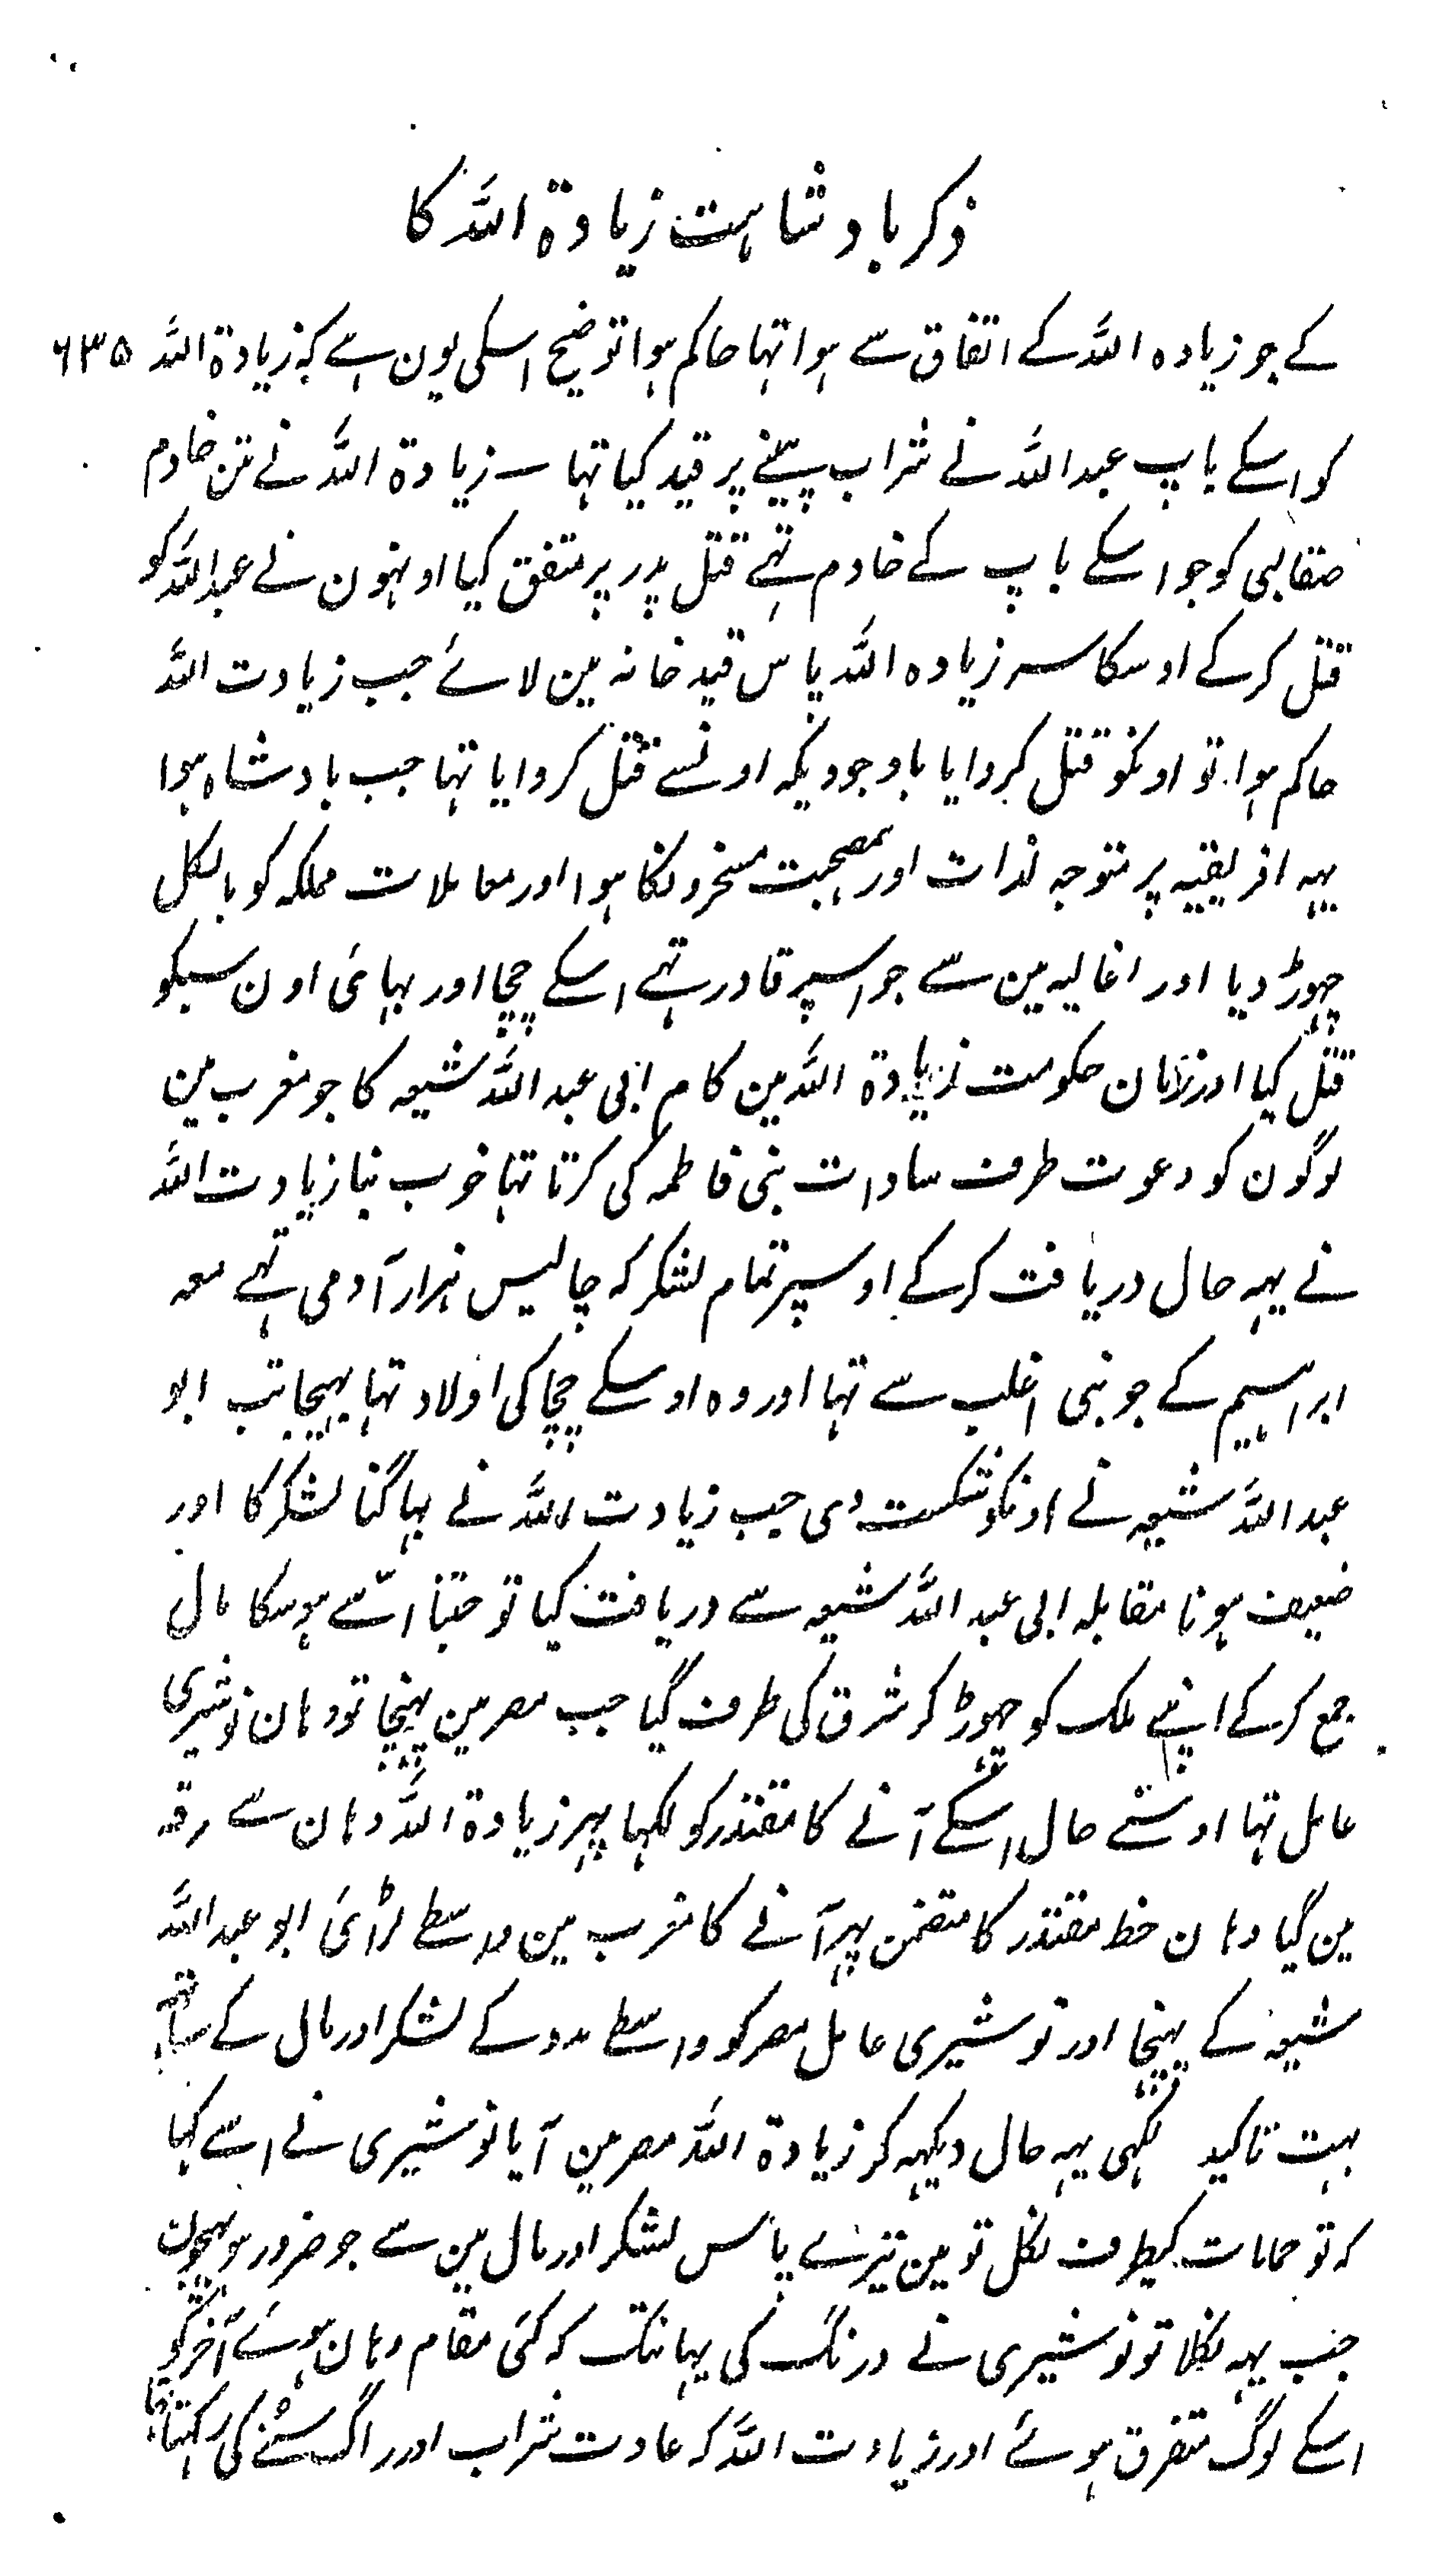 ذکر بادشاہت زیادۃ اللہ کا
کے جو زیادہ اللہ کے اتفاق سے ہوا تہا حاکم ہوا توضیح اسکی یون ہے کہ زیادۃ اللہ ۶۳۵
کو اسکے باپ عبداللہ نے شراب پینے پر قید کیا تہا ۔ زیادۃ اللہ نے تن خادم
صقالبی کو جو اسکے باپ کے خادم تہے قتل پدر پر متفق کیا اونہون نے عبداللہ کو
قتل کرکے اوسکا سر زیادہ اللہ پاس قید خانہ مین لائے جب زیادت اللہ
حاکم ہوا تو اونکو قتل کروایا باوجودیکہ اونسے قتل کروایا تہا جب بادشاہ ہوا
یہہ افریقیہ پر متوجہ لذات اور ہمصحبت مسخرونکا ہوا اور معاملات مملکہ کو بالکل
چہوڑ دیا اور اغالیہ مین سے جو اسپر قادر تہے اسکے چچا اور بہائی اون سبکو
قتل کیا اور زمان حکومت زیادۃ اللہ مین کام ابی عبد اللہ شیعہ کا جو مغرب مین
لوگون کو دعوت طرف سادات بنی فاطمہ کی کرتا تہا خوب بنا زیادت اللہ
نے یہہ حال دریافت کرکے اوسپر تمام لشکر کہ چالیس ہزار آدمی تہے معہ
ابراہیم کے جو بنی اغلب سے تہا اور وہ اوسکے چچا کی اولاد تہا بہیجا تب ابو
عبد اللہ شیعہ نے اونکو شکست دی جب زیادت اللہ نے بہاگنا لشکر کا اور
ضعیف ہونا مقابلہ ابی عبد اللہ شیعہ سے دریافت کیا تو جتنا اسّے ہوسکا مال
جمع کرکے اپنے ملک کو چہوڑ کر شرق کی طرف گیا جب مصر مین پہنچا تو وہان نوشیری
عامل تہا اوسنے حال اسکے آنے کا مقتدر کو لکہا پہر زیادۃ اللہ وہان سے رقہ
مین گیا وہان خط مقتدر کا متضمن پہر آنے کا مغرب مین واسطے لڑائی ابو عبد اللہ
شیعہ کے پہنچا اور نوشیری عامل مصر کو واسطے مدد کے لشکر اور مال کے ساتہہ
بہت تاکید لکہی یہہ حال دیکہہ کر زیادۃ اللہ مصر مین آیا نوشیری نے اسے کہا
کہ تو حمامات کیطرف نکل تو مین تیرے پاس لشکر اور مال مین سے جو ضرور ہو بہیجون
جب یہہ نکلا تو نوشیری نے درنگ کی یہانتک کہ کئی مقام وہان ہوئے آخر کو
اسکے لوگ متفرق ہوئے اور زیادت اللہ کہ عادت شراب اور راگ سننے کی رکہتا تہا